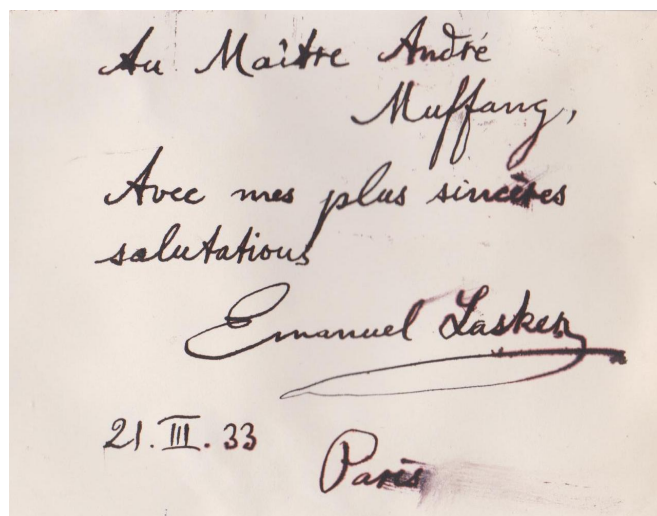 Au Maître André
Muffang,
Avec mes plus sincères
salutations
Emanuel Lasker
21. III. 33
Paris